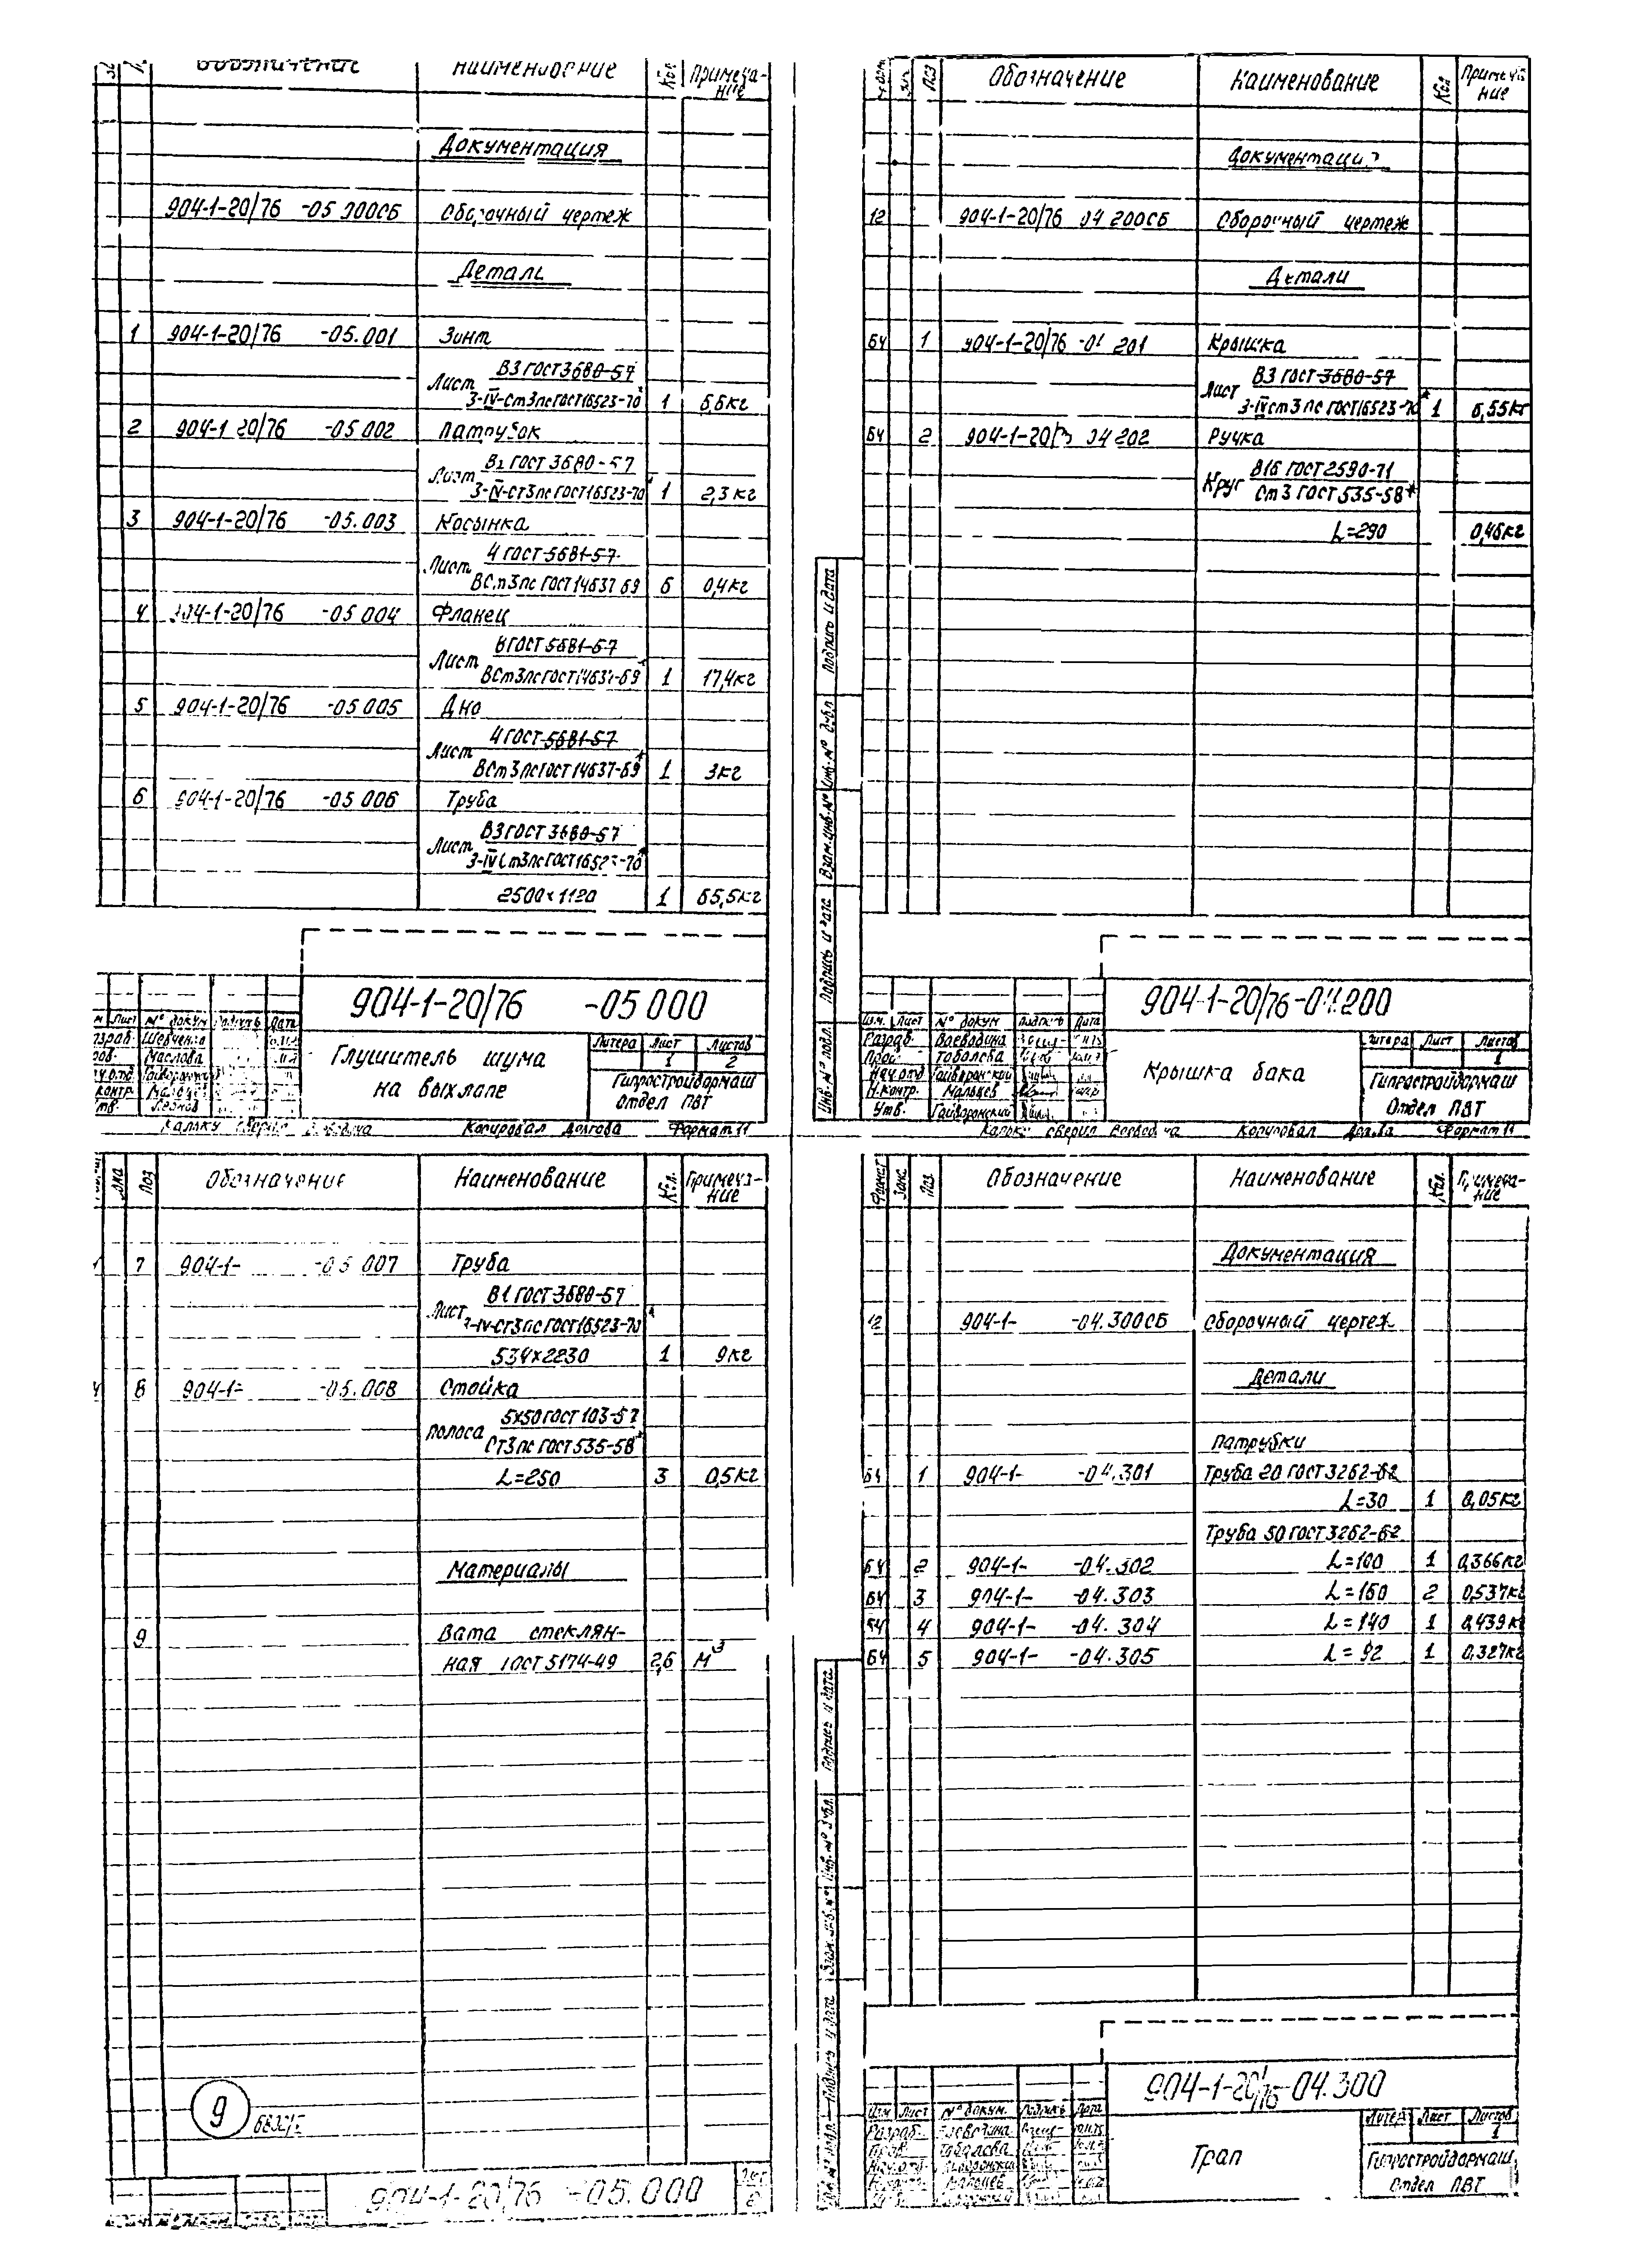 Обозначение Наименование Кол Примеча-
ние
Документация
904-1-20/76 -05 000СБ Сборочный чертеж
Деталь
1 904-1-20/76 -05.001 Зонт
Лист В3 ГОСТ 3680-57
3-IV-Ст3пс ГОСТ 16523-70* 1 5,5кг
2 904-1 20/76 -05.002 Патрубок
Лист В2 ГОСТ 3680-57
3-IV-Ст3пс ГОСТ 16523-70* 1 2,3кг
3 904-1-20/76 -05.003 Косынка
Лист 4 ГОСТ 5681-57
ВСт3пс ГОСТ 14637 69 6 0,4кг
4 904-1-20/76 -05 004 Фланец
Лист 8 ГОСТ 5681-57
ВСт3пс ГОСТ 14637-69* 1 17,4кг
5 904-1-20/76 -05 005 Дно
Лист 4 ГОСТ 5681-57
ВСт3пс ГОСТ 14637-69* 1 3кг
6 904-1-20/76 -05 006 Труба
Лист В3 ГОСТ 3680-57
3-IV Ст3пс ГОСТ 16523-70*
2500х1120 1 65,5кг
904-1-20/76 -05 000
Лист № докум Подпись Дата
Разраб. Шевченко
Пров. Маслова
Нач.отд Гайворонский
Н.контр.
Утв.
Глушитель шума
на выхлопе
Литера Лист Листов
1 2
Гипростройдормаш
Отдел ПВТ
Кальку сверил Воеводина Копировал Долгова Формат 11
Формат Зон. Поз Обозначение Наименование Кол Примеча
ние
Документация
12 904-1-20/76 04 200СБ Сборочный чертеж
Детали
БЧ 1 904-1-20/76 -04 201 Крышка
Лист В3 ГОСТ 3680-57
3-IV Ст3пс ГОСТ 16523-70* 1 6,55кг
БЧ 2 904-1-20/76 04 202 Ручка
Круг В16 ГОСТ 2590-71
Ст3 ГОСТ 535-58*
L=290 0,46кг
Подпись и дата
Инв. № дубл
Взам. инв. №
Подпись и дата
Инв. № подл.
904-1-20/76-04.200
Изм. Лист № докум Подпись Дата
Разраб. Воеводина
Пров. Товалева
Нач отд Гайворонский
Н.контр. Мальцев
Утв. Гайворонский
Крышка бака
Литера Лист Листов
1
Гипростройдормаш
Отдел ПВТ
Кальку сверил Воеводина Копировал Долгова Формат 11
Формат Зона Поз Обозначение Наименование Кол. Примеча-
ние
7 904-1- -05 007 Труба
Лист В1 ГОСТ 3680-57
3-IV-Ст3пс ГОСТ 16523-70*
534х2230 1 9кг
8 904-1- -05.008 Стойка
Полоса 5х50 ГОСТ 103-57
Ст3пс ГОСТ 535-58*
L=250 3 0,5кг
Материалы
9 Вата стеклян-
ная ГОСТ 5174-49 2,6 м³
9
904-1-20/76 -05.000 Лист
2
Формат Зона Поз Обозначение Наименование Кол. Примеча-
ние
Документация
12 904-1- -04.300СБ Сборочный чертеж
Детали
Патрубки
БЧ 1 904-1- -04.301 Труба 20 ГОСТ 3262-62
L=30 1 0,05кг
Труба 50 ГОСТ 3262-62
БЧ 2 904-1- -04.302 L=100 1 0,366кг
БЧ 3 904-1- -04.303 L=150 2 0,537кг
БЧ 4 904-1- -04.304 L=140 1 0,439кг
БЧ 5 904-1- -04.305 L=92 1 0,327кг
Подпись и дата
Инв. № дубл.
Взам. инв. №
Подпись и дата
Инв. № подл.
904-1-20/76-04.300
Изм Лист № докум. Подпись Дата
Разраб. Воеводина
Пров. Товалева
Нач.отд. Гайворонский
Н.контр. Мальцев
Трап
Литер Лист Листов
1
Гипростройдормаш
Отдел ПВТ